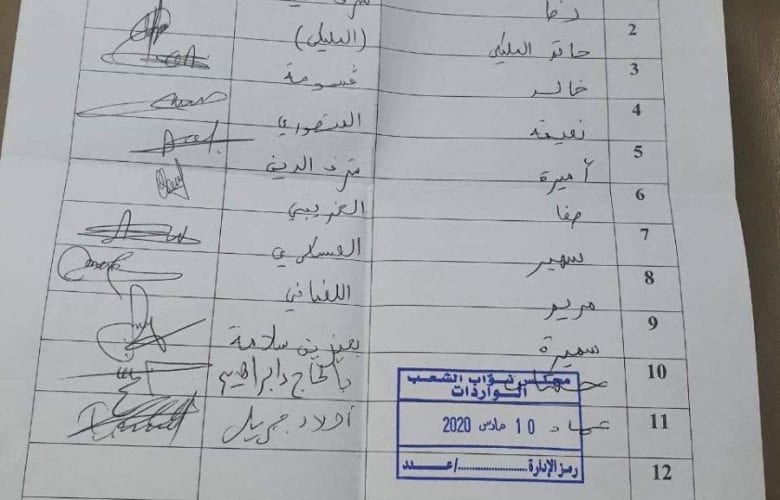 رضا
2 حاتم المليكي (المليكي)
3 خالد قسومة
4 نعيمة المنصوري
5 أميرة شرف الدين
6 صفا الغريبي
7 سهير العسكري
8 مريم اللغماني
9 سميرة بن سلامة
10 بالحاج ابراهيم
مجلس نواب الشعب
الواردات
11 عماد أولاد جبريل
10 مارس 2020
12
رمز الإدارة ............/عـــدد